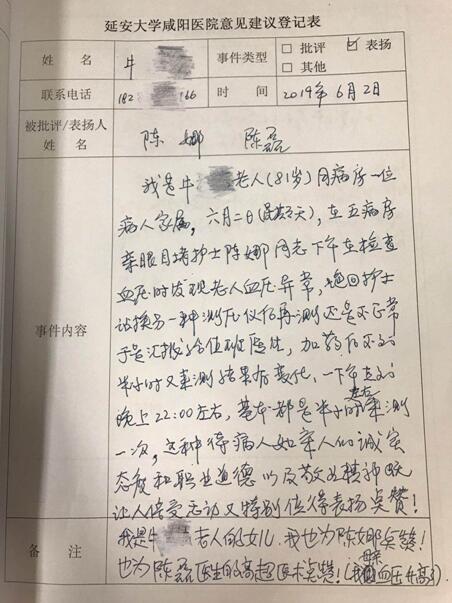 延安大学咸阳医院意见建议登记表
姓 名 牛 事件类型 □ 批评 ☑ 表扬
□ 其他
联系电话 182 166 时 间 2019年6月2日
被批评/表扬人
姓 名 陈 娜 陈磊
事件内容
我是牛 老人(81岁)同病房一位
病人家属, 六月二日(星期天), 在五病房
亲眼目睹护士陈娜同志下午在检查
血压时发现老人血压异常, 她回护士
站换另一种测压仪仍再测还是不正常
于是汇报给值班医生, 加药后不到
半小时又来测结果有变化、一下午直到
晚上22:00左右, 基本都是半小时左右来测
一次, 这种待病人如亲人的诚实
态度和职业道德以及敬业精神
让人倍受感动又特别值得表扬点赞!
备 注
我是牛 老人的女儿. 我也为陈娜点赞!
也为陈磊医生的高超医术点赞!(我 血压升高)